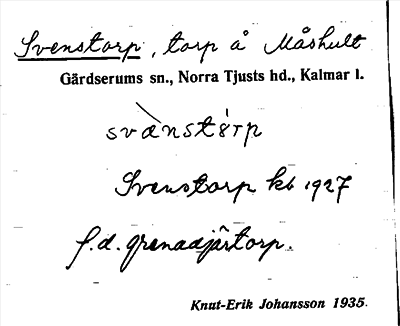 Svenstorp, torp å Måshult
Gärdserums sn., Norra Tjusts hd., Kalmar l.
svὰnstórp
Svenstorp kb 1927
f.d. grenadjärtorp.
Knut-Erik Johansson 1935.